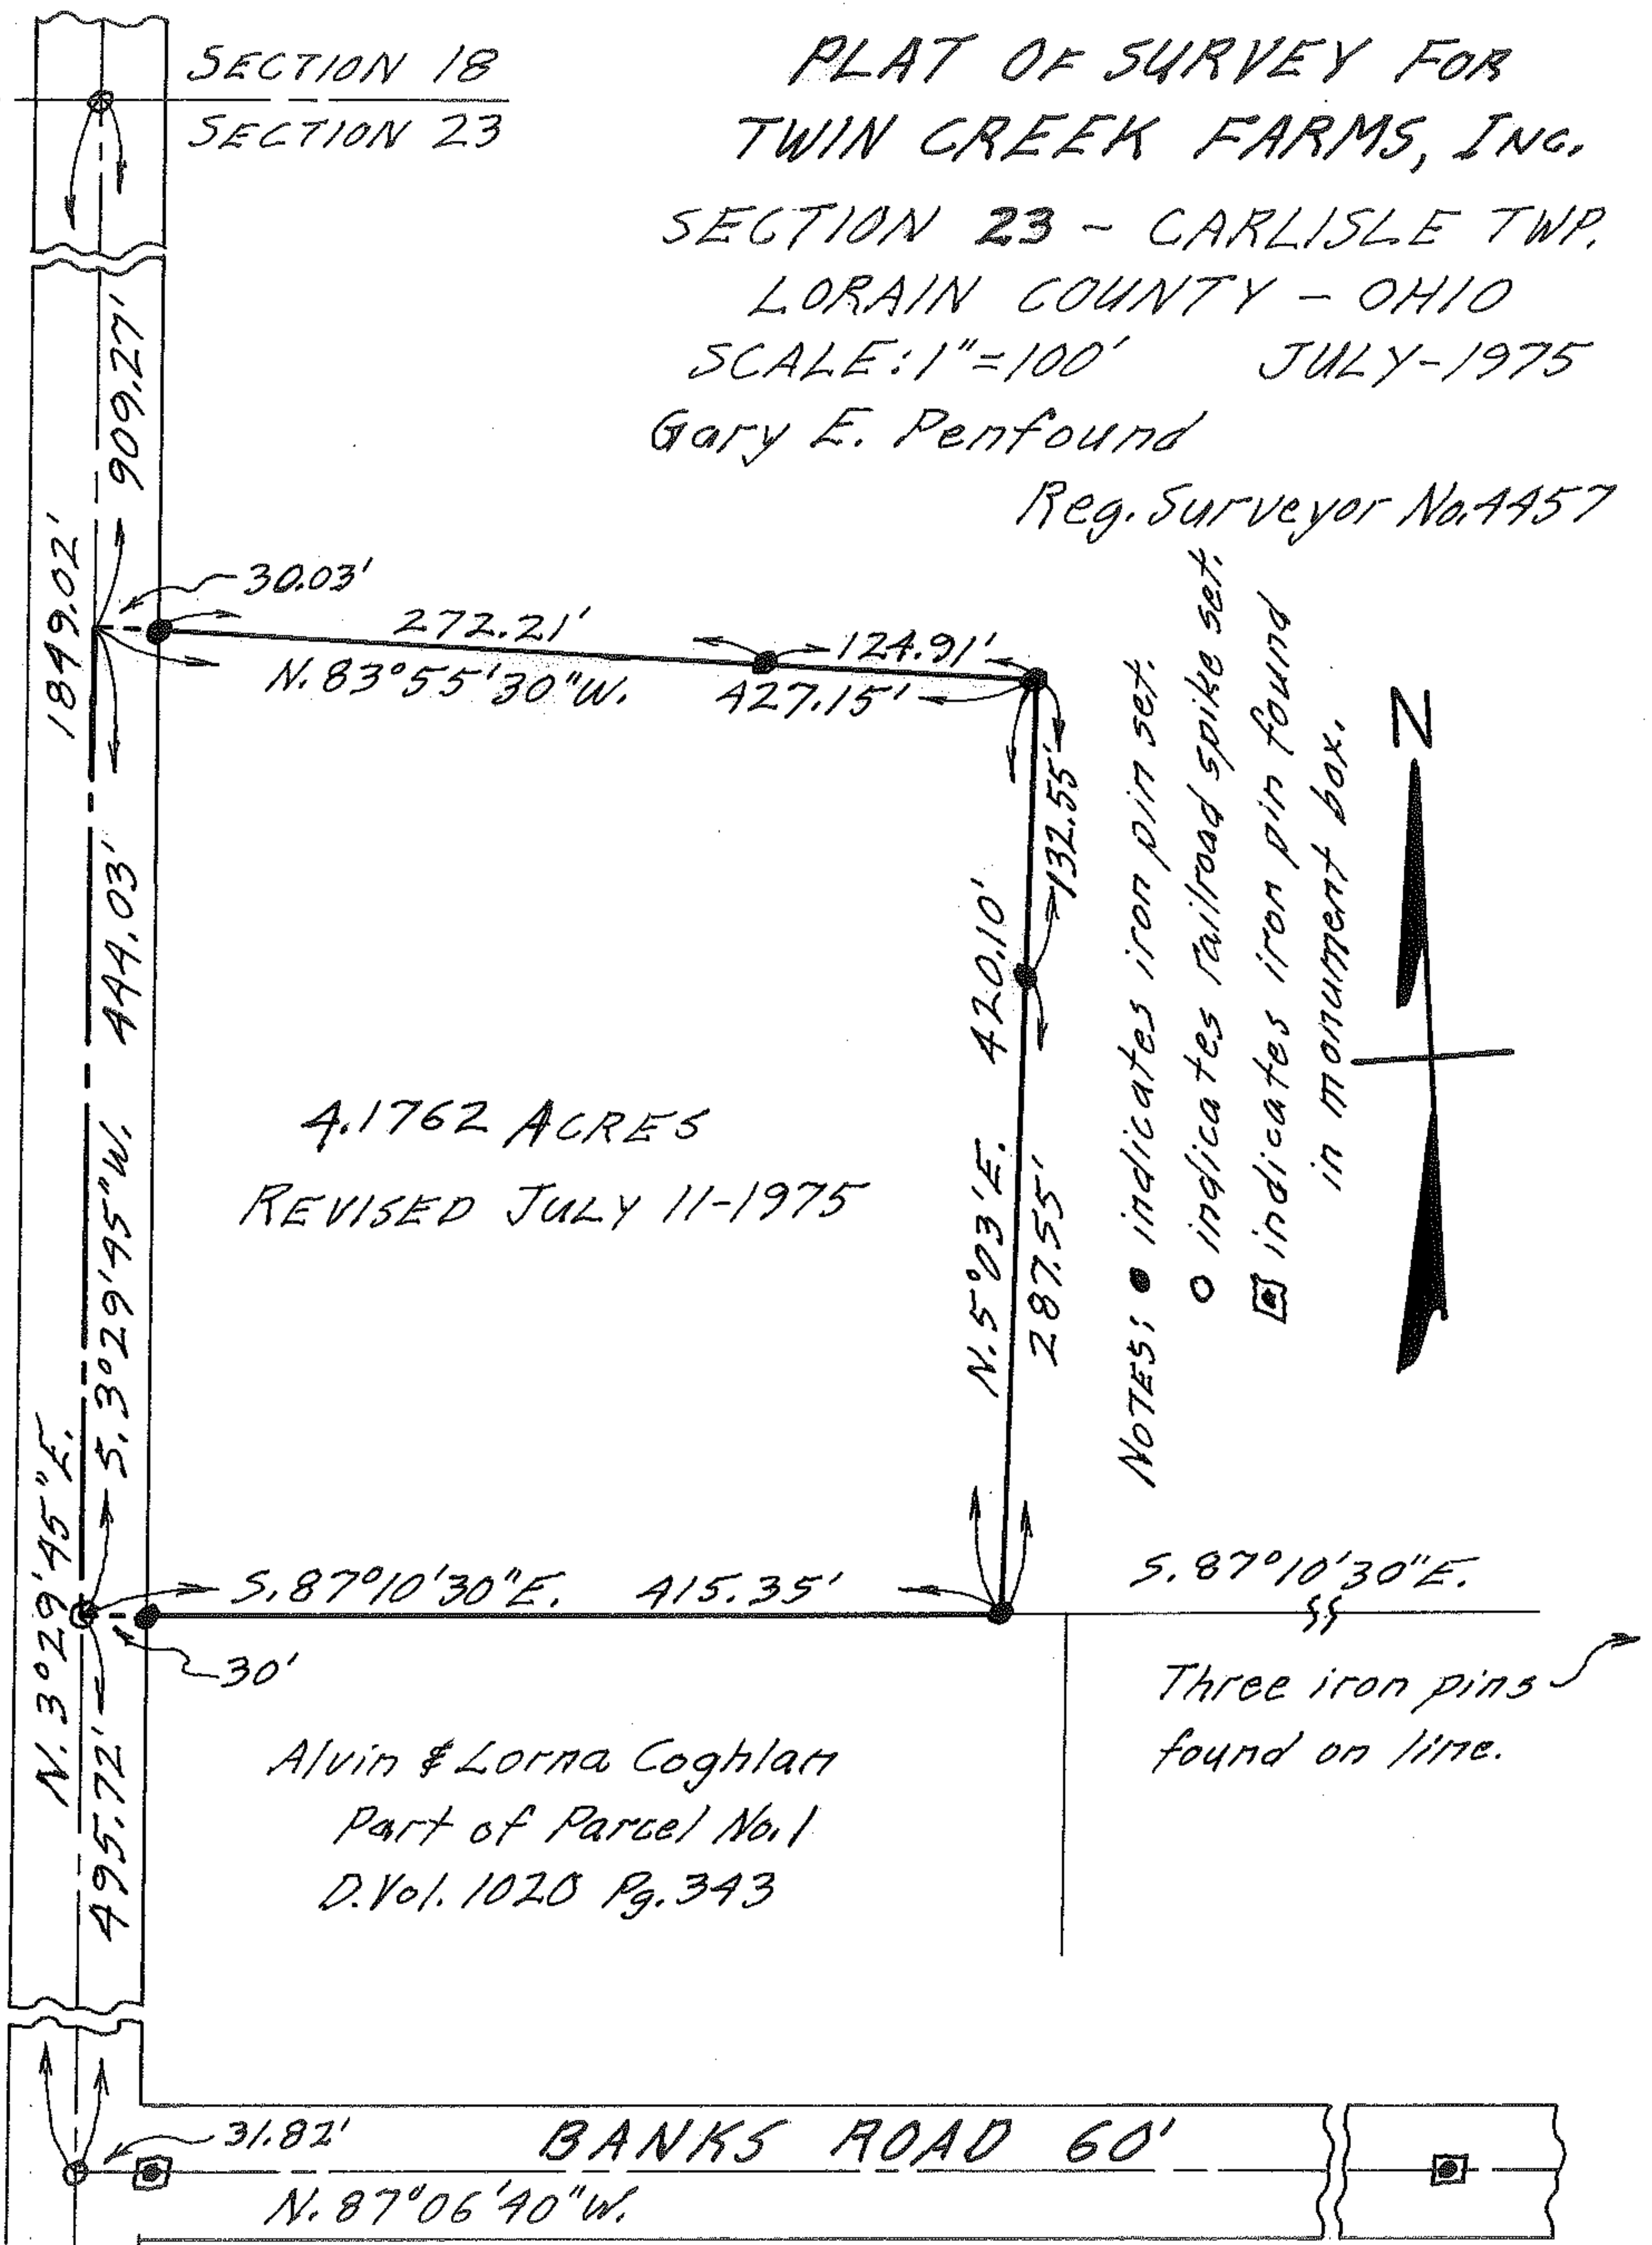 SECTION 18
SECTION 23
PLAT OF SURVEY FOR
TWIN CREEK FARMS, INC.
SECTION 23 - CARLISLE TWP.
LORAIN COUNTY - OHIO
SCALE: 1"=100' JULY-1975
Gary E. Penfound
Reg. Surveyor No. 4457
909.27'
1849.02'
30.03'
272.21'
124.91'
N. 83°55'30"W.
427.15'
132.55'
444.03'
420.10'
N. 5°03'E.
287.55'
S. 3°29'45"W.
N. 3°29'45"E.
4.1762 ACRES
REVISED JULY 11-1975
NOTES: ● indicates iron pin set.
○ indicates railroad spike set.
indicates iron pin found
in monument box.
N
S. 87°10'30"E. 415.35'
S. 87°10'30"E.
30'
495.72'
Three iron pins
found on line.
Alvin & Lorna Coghlan
Part of Parcel No. 1
D. Vol. 1020 Pg. 343
31.82'
BANKS ROAD 60'
N. 87°06'40"W.